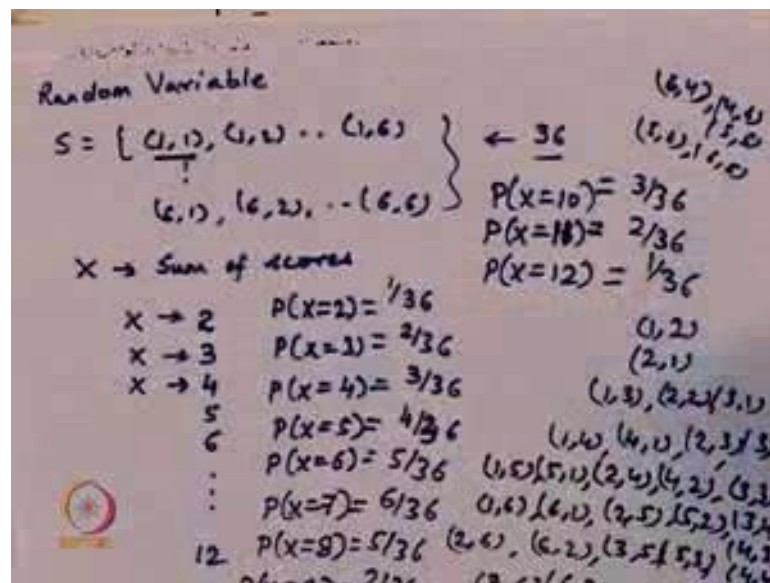 Random Variable
S = { (1,1), (1,2) .. (1,6)
(6,1), (6,2), .. (6,6) } ← 36
X → Sum of scores
X → 2 P(X=2) = 1/36
X → 3 P(X=3) = 2/36
X → 4 P(X=4) = 3/36
5 P(X=5) = 4/36
6 P(X=6) = 5/36
: P(X=7) = 6/36
12 P(X=8) = 5/36
P(X=10) = 3/36
P(X=11) = 2/36
P(X=12) = 1/36
(6,4), (4,6)
(1,2)
(2,1)
(1,3), (2,2) (3,1)
(1,4), (4,1), (2,3)
(1,5) (5,1), (2,4), (4,2), (3,3
(1,6), (6,1), (2,5) (5,2)
(2,6), (6,2), (3,5) (5,3)